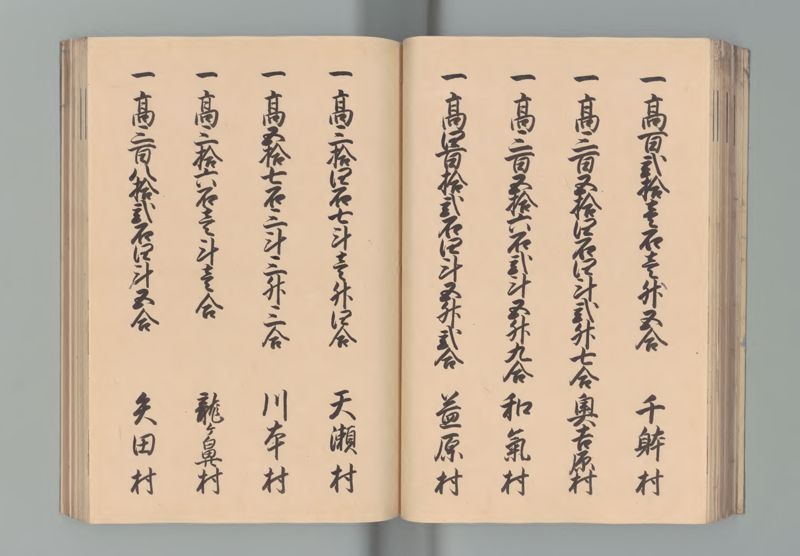 一 高百弐拾壱石壱升五合 千躰村
一 高三百五拾四石四斗弐升七合 奥吉原村
一 高三百五拾六石弐斗五升九合 和氣村
一 高四百拾弐石四斗五升弐合 益原村
一 高三拾四石七斗壱升四合 天瀬村
一 高五拾七石三斗三升三合 川本村
一 高三拾六石壱斗壱合 龍ヶ鼻村
一 高三百八拾弐石四斗五合 矢田村